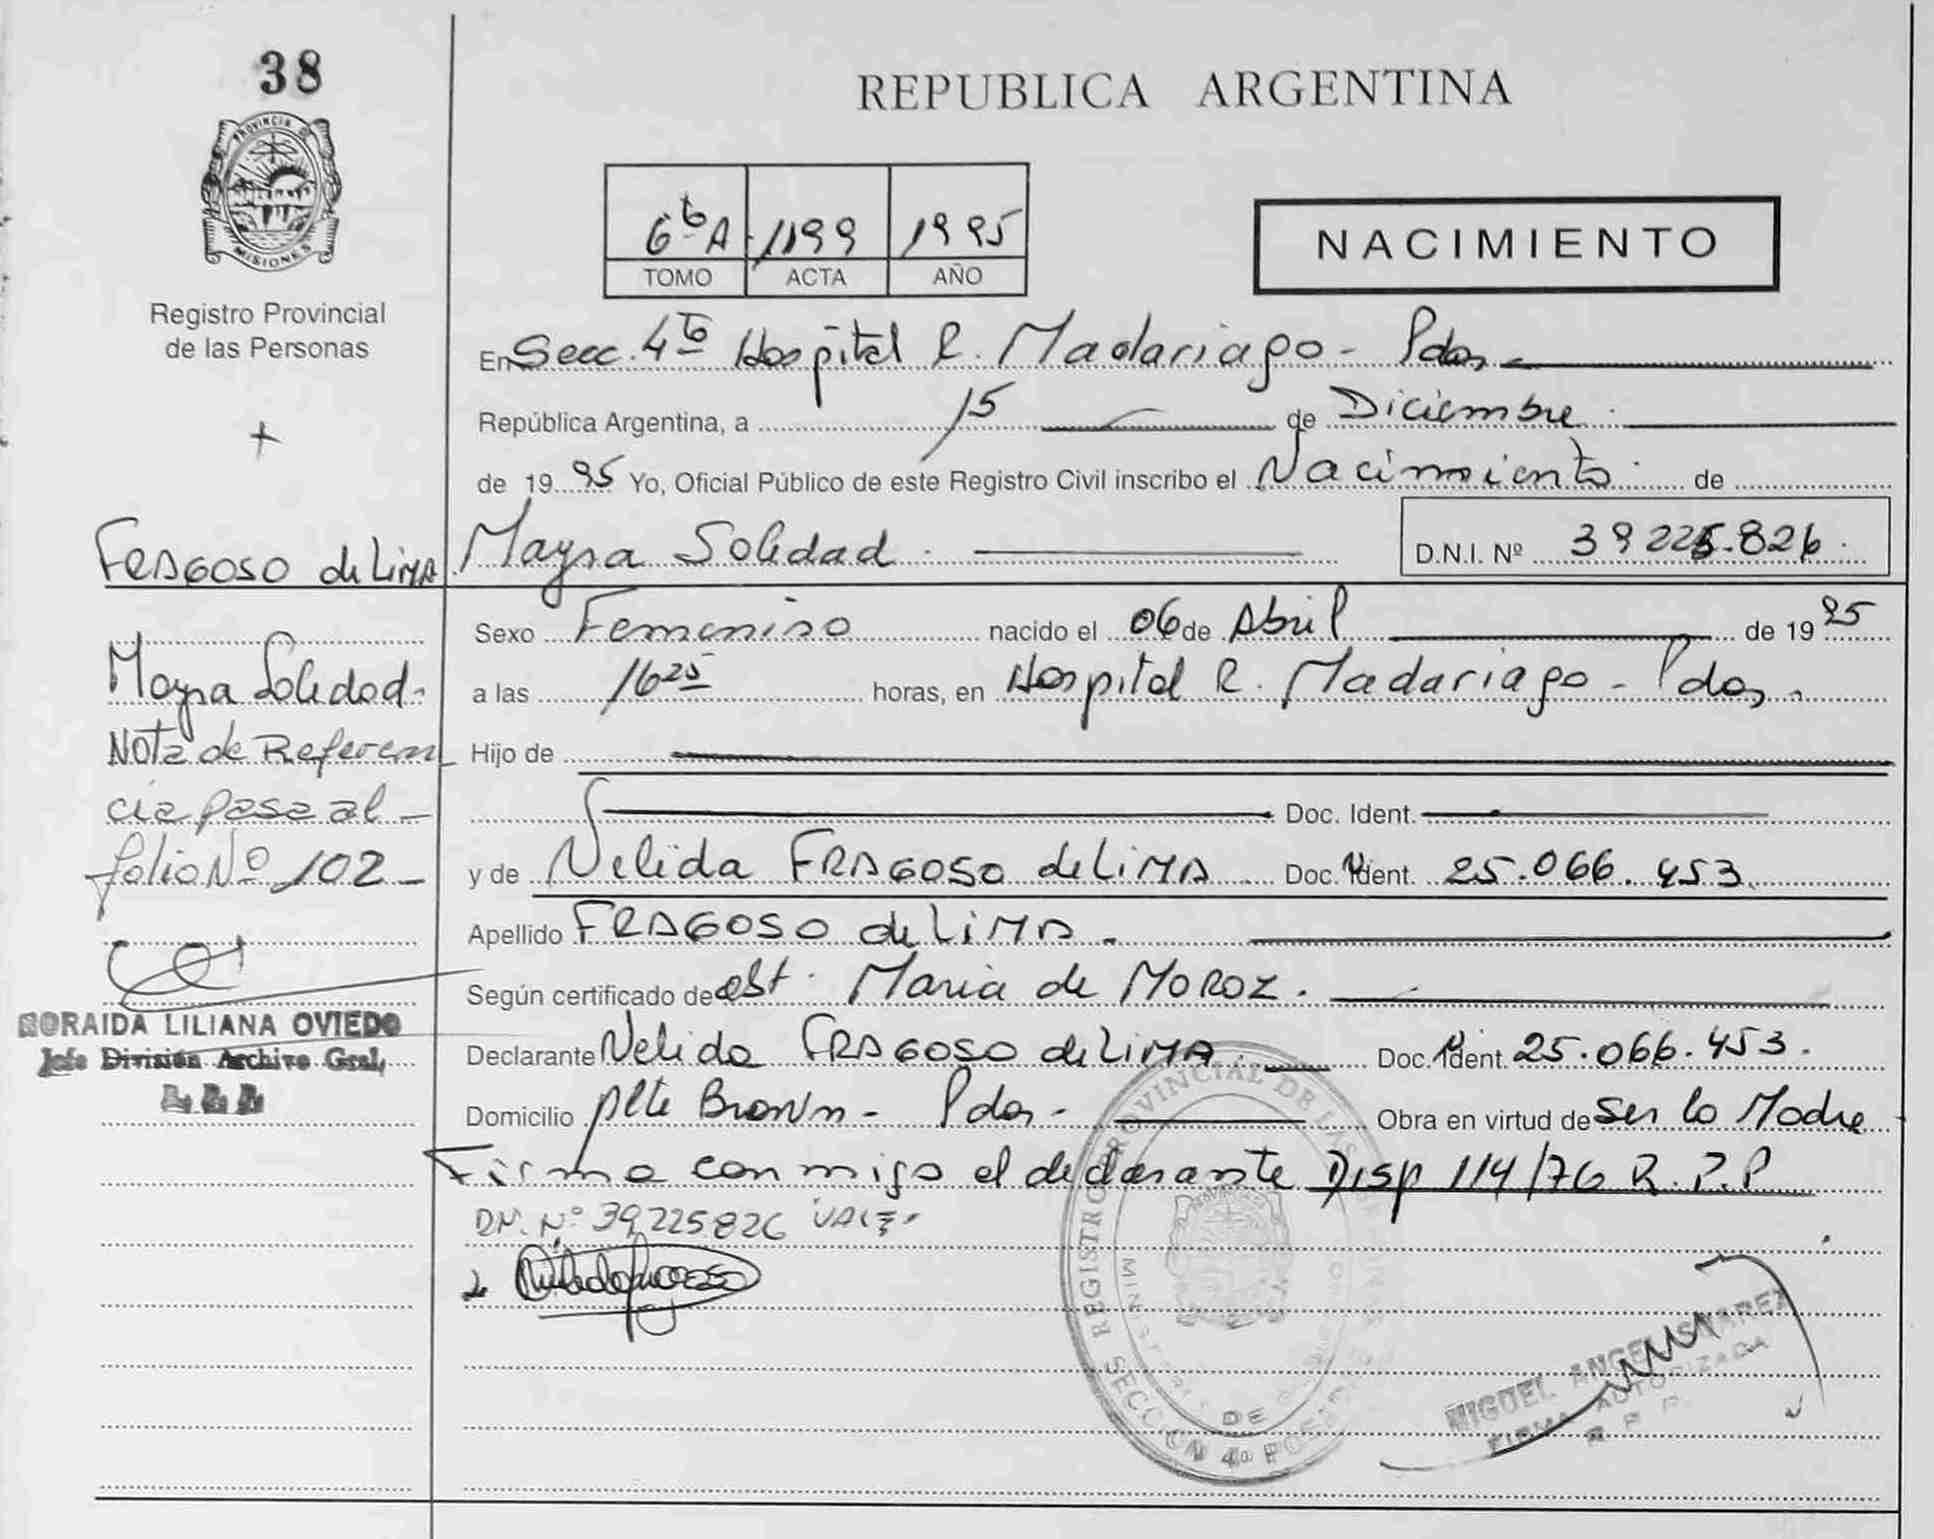 38
PROVINCIA DE
MISIONES
Registro Provincial
de las Personas
REPUBLICA ARGENTINA
6to A 1199 1995
TOMO ACTA AÑO
NACIMIENTO
En Secc. 4ta Hospital R. Madariaga - Pdas
República Argentina, a 15 de Diciembre
de 1995 Yo, Oficial Público de este Registro Civil inscribo el Nacimiento de
FRAGOSO de LIMA Mayra Soledad D.N.I. Nº 39225.826
Sexo Femenino nacido el 06 de Abril de 1995
a las 16 25 horas, en Hospital R. Madariaga - Pdas
Hijo de
Doc. Ident.
y de Nelida FRAGOSO de LIMA Doc. Ident. 25.066.453
Apellido FRAGOSO de LIMA
Según certificado de obst. Maria de MOROZ.
Declarante Nelida FRAGOSO de LIMA Doc. Ident. 25.066.453.
Domicilio Alte Brown - Pdas - Obra en virtud de Ser la Madre
Firma conmigo el declarante Disp 114/76 R.P.P
DN. Nº 39225826 VALE
Mayra Soledad
Nota de Referen
cia pasa al
folio Nº 102
ZORAIDA LILIANA OVIEDO
Jefe División Archivo Gral.
REGISTRO PROVINCIAL DE LAS
SECCION 4a
MIGUEL ANGEL
FIRMA AUTORIZADA
R P P